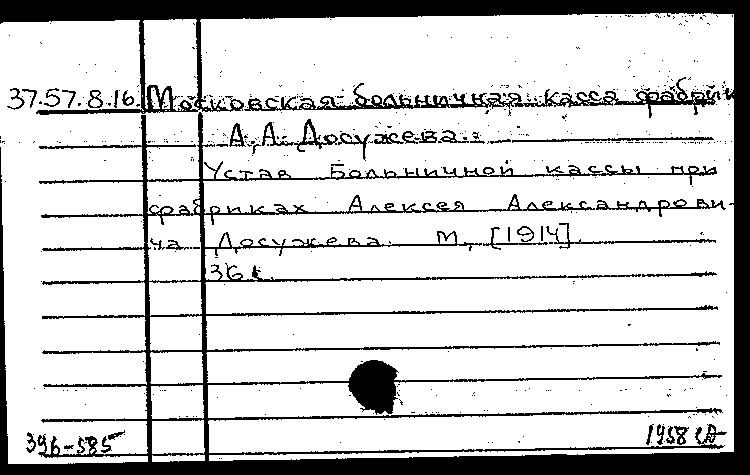 37.57.8.16. Московская больничная касса фабрик
А.А. Досужева.
Устав Больничной кассы при
фабриках Алексея Александрови-
ча Досужева. М., [1914].
36 с.
396-585
1958